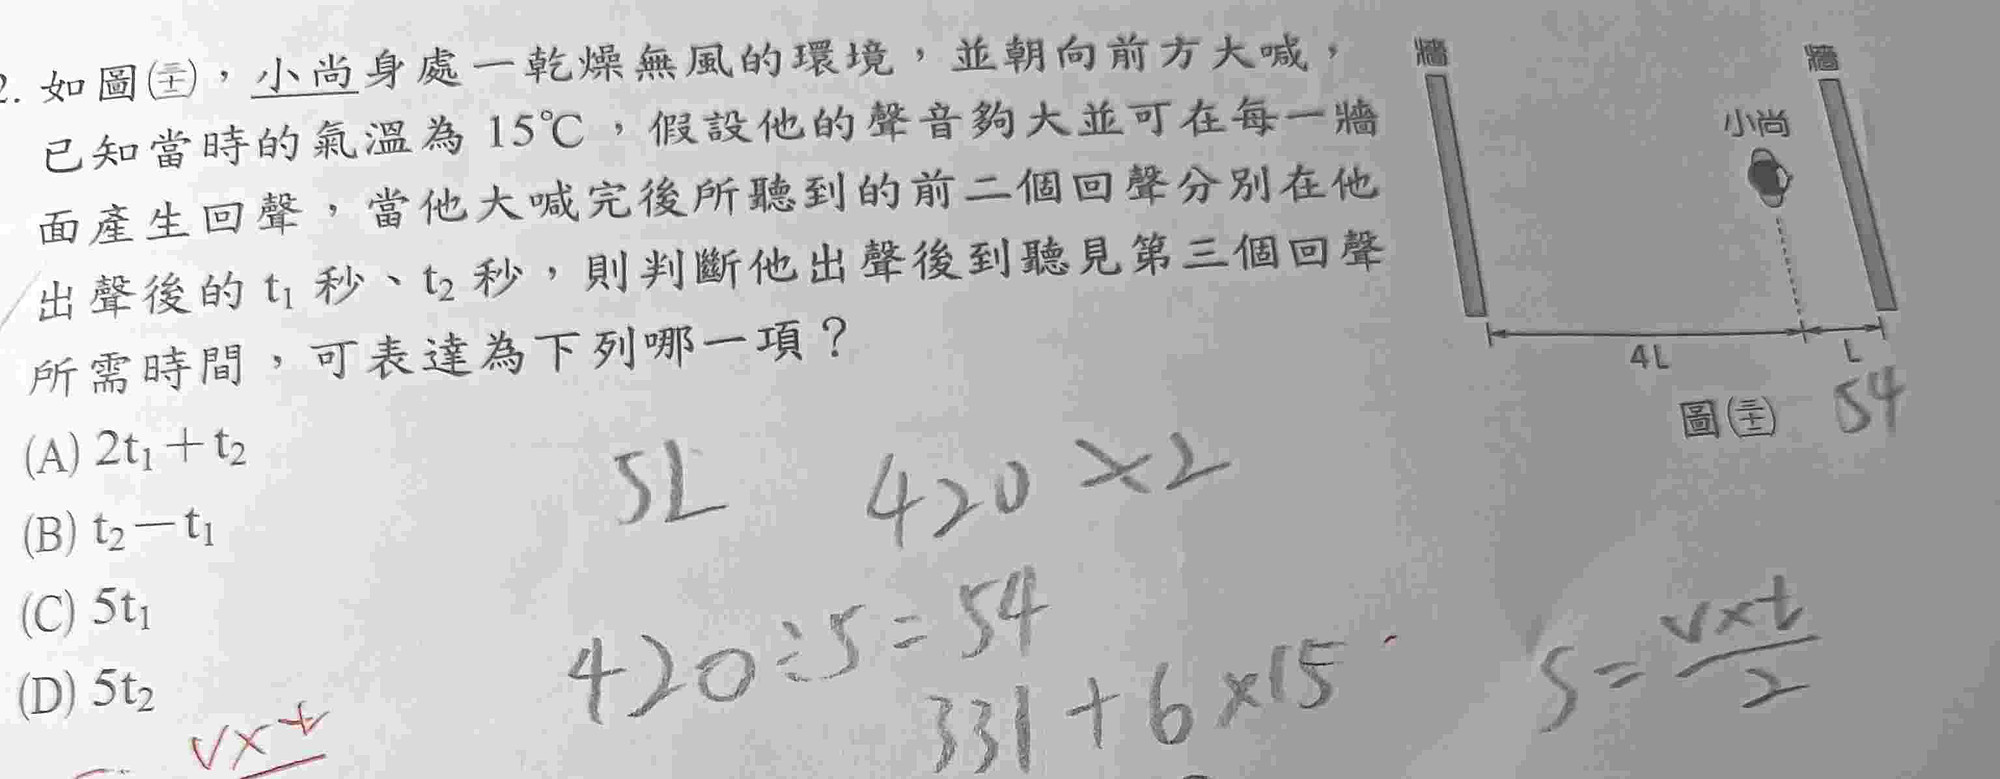 2. 如圖(三十),小尚身處一乾燥無風的環境,並朝向前方大喊,
已知當時的氣溫為 15℃,假設他的聲音夠大並可在每一牆
面產生回聲,當他大喊完後所聽到的前二個回聲分別在他
出聲後的 t₁ 秒、t₂ 秒,則判斷他出聲後到聽見第三個回聲
所需時間,可表達為下列哪一項?
(A) 2t₁+t₂
(B) t₂-t₁
(C) 5t₁
(D) 5t₂
牆
牆
小尚
4L
L
54
5L
420×2
420÷5=54
331+6×15
S=v×t/2
v×t